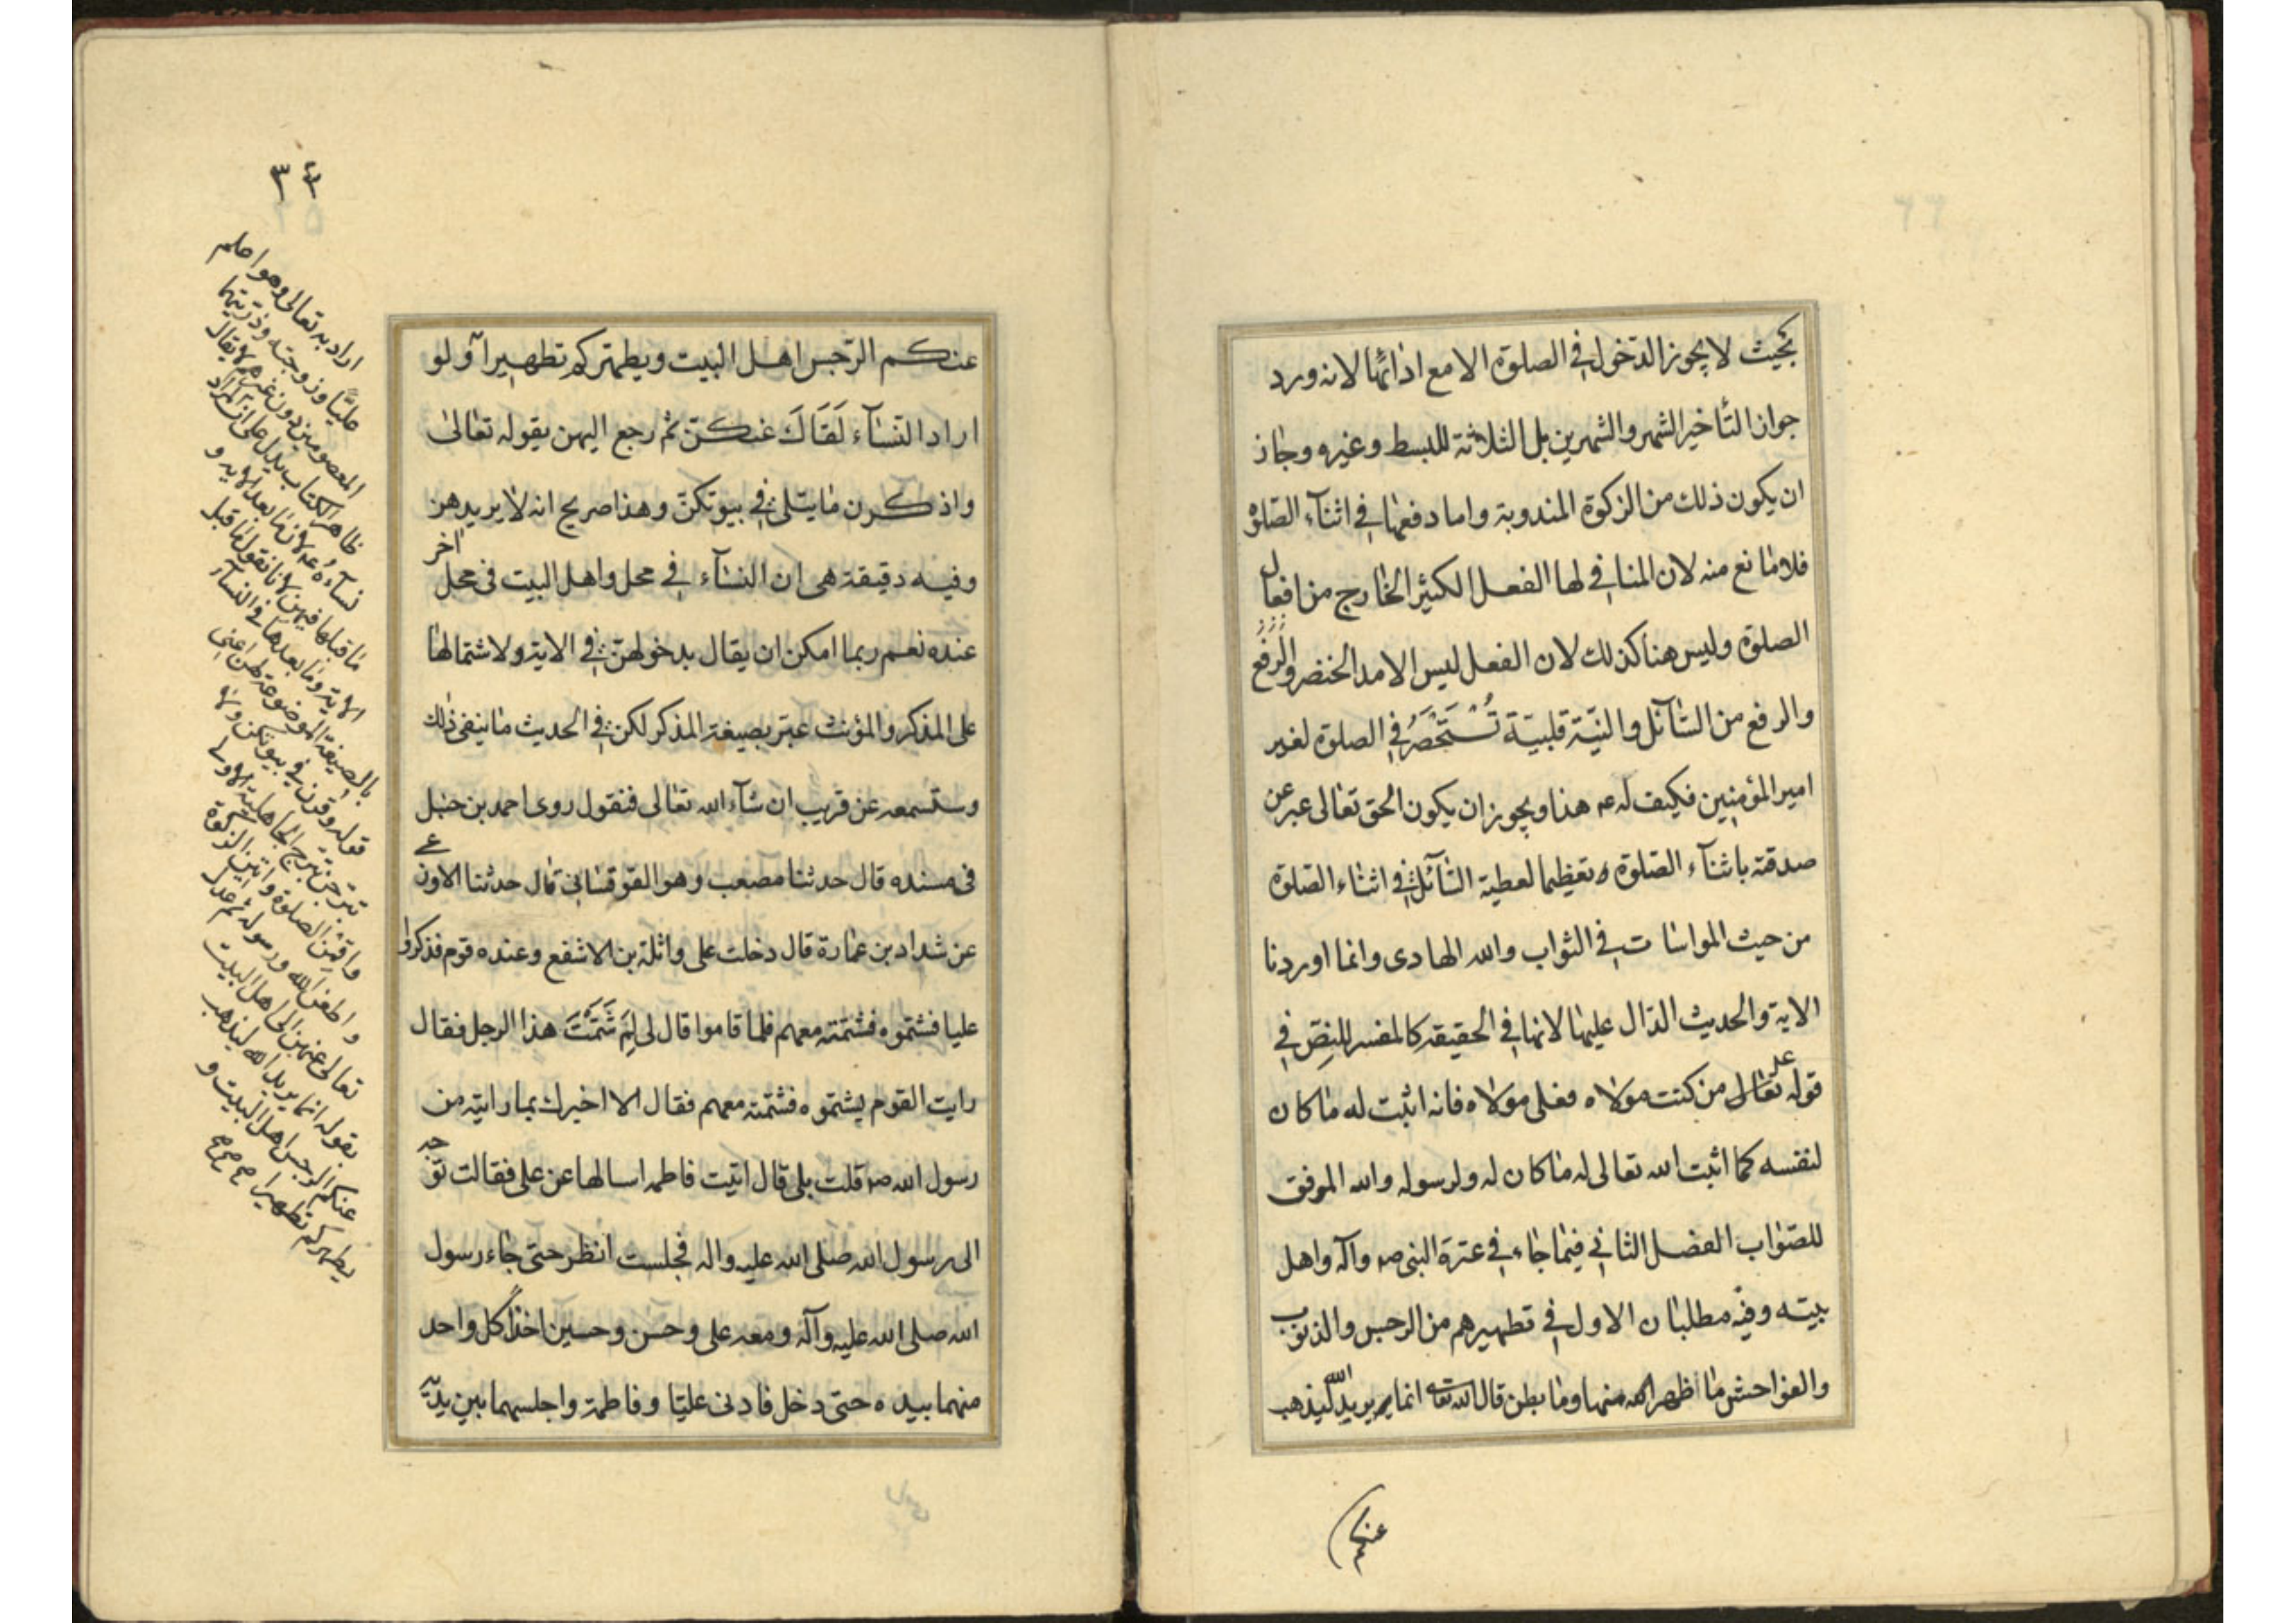 بحيث لا يجوز الدخول في الصلوة الا مع ادائها لانه ورد
جواز التأخير الشهر والشهرين بل الثلاثة للبسط وغيره وجاز
ان يكون ذلك من الزكوة المندوبة واما دفعها في اثنآء الصلوة
فلا مانع منه لان المنافي لها الفعل الكثير الخارج من افعال
الصلوة وليس هنا كذلك لان الفعل ليس الا مد الخنصر والرفع
والرفع من السآئل والنيّة قلبيّة تُسْتَحْضَرُ في الصلوة لغير
امير المؤمنين فكيف له عم هذا ويجوز ان يكون الحق تعالى عبر عن
صدقته باثنآء الصلوة تعظيما لعطية السآئل في اثناء الصلوة
من حيث المواسات في الثواب والله الهادى وانما اوردنا
الاية والحديث الدال عليها لانها في الحقيقه كالمفسر للنص في
قوله تعالى من كنت مولاه فعلى مولاه فانه اثبت له ما كان
لنفسه كما اثبت الله تعالى له ما كان له ولرسوله والله الموفق
للصواب الفصل الثاني فيما جاء في عترة النبى صم وآله واهل
بيته وفيه مطلبان الاول في تطهيرهم من الرجس والذنوب
والفواحش ما ظهر منها وما بطن قال الله تعا انما يريد الله ليذهب
عنكم
٣٤
عنكم الرّجس اهل البيت ويطهّركم تطهيرا ولو
اراد النسآء لَقَالَ عنكنّ ثم رجع اليهن بقوله تعالى
واذكرن ما يتلى في بيوتكنّ وهذا صريح انه لا يريدهن
وفيه دقيقة هى ان النسآء في محل واهل البيت فى محل اخر
عنده نعم ربما امكن ان يقال بدخولهنّ في الاية ولاشتمالها
على المذكر والمؤنث عبّر بصيغة المذكر لكن في الحديث ما ينفى ذلك
وستسمعه عن قريب ان شآء الله تعالى فنقول روى احمد بن حنبل
فى مسنده قال حدثنا مصعب وهو القوقسانى قال حدثنا الاوزعى
عن شداد بن عمارة قال دخلت على واثلة بن الاشفع وعنده قوم فذكروا
عليا فشتموه فشتمته معهم فلما قاموا قال لى لِمَ شَتَمْتَ هذا الرجل فقال
رايت القوم يشتموه فشتمته معهم فقال الا اخبرك بما رايته من
رسول الله صم قلت بلى قال اتيت فاطمه اسالها عن على فقالت توجه
الى رسول الله صلى الله عليه واله فجلست انظر حتى جاء رسول
الله صلى الله عليه وآله ومعه على وحسن وحسين اخذًا كل واحد
منهما بيده حتى دخل فادنى عليّا وفاطمة واجلسهما بين يديه
اراد به تعالى وهو اعلم
عليًّا وزوجته وذريتهما
المعصومين دون غيرهم لا يقال
ظاهر الكتاب يدل على ان المراد
نسآءه لان ما بعد الاية و
ما قبلها فيهن لانا نقول ما قبل
الاية وما بعدها في النسآء
بالصيغة الموضوعة لهن اعنى
قوله وقرن في بيوتكن ولا
تبرجن تبرج الجاهلية الاولى
واقمن الصلوة واتين الزكوة
واطعن الله ورسوله ثم عدل
تعالى عنهن الى اهل البيت
بقوله انما يريد الله ليذهب
عنكم الرجس اهل البيت و
يطهركم تطهيرا